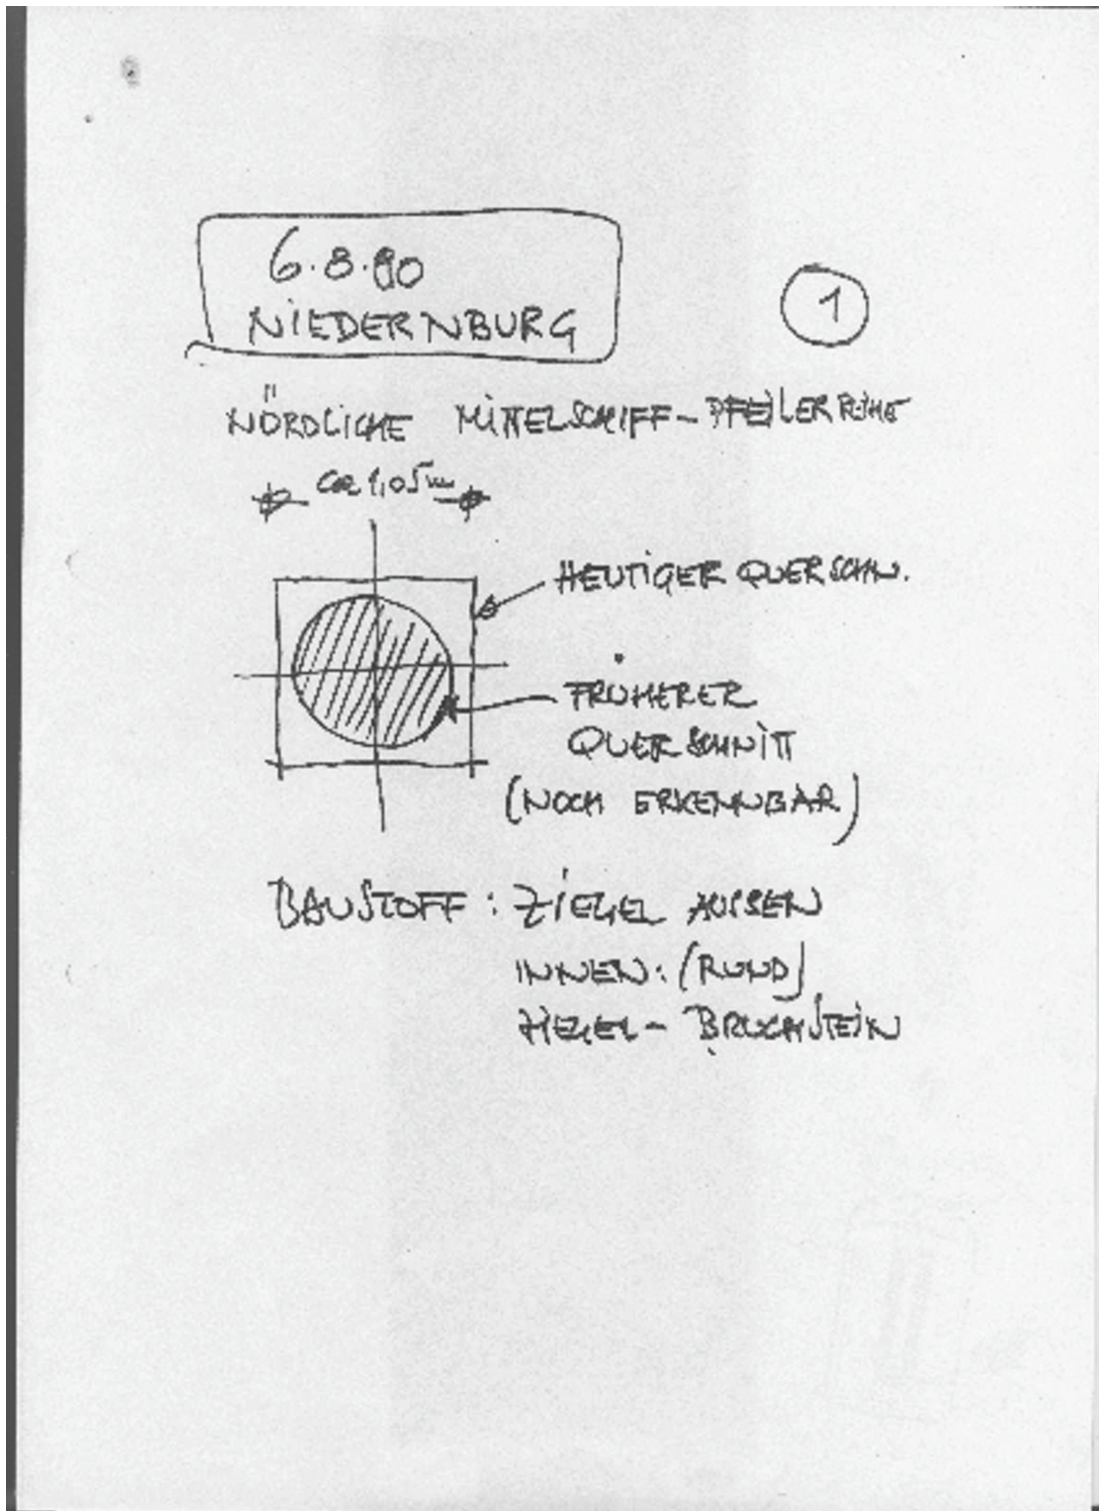 6.8.90
NIEDERNBURG
1
NÖRDLICHE MITTELSCHIFF-PFEILERREIHE
ca 1,05 m
HEUTIGER QUERSCHN.
FRÜHERER
QUERSCHNITT
(NOCH ERKENNBAR)
BAUSTOFF: ZIEGEL AUSSEN
INNEN: (RUND)
ZIEGEL- BRUCHSTEIN